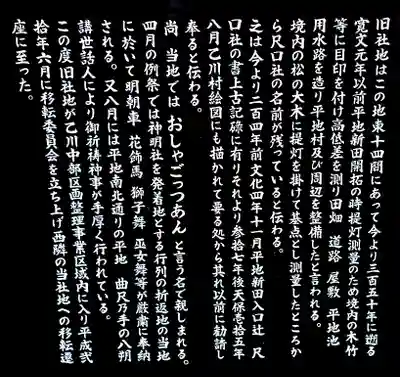 旧社地はこの地東十四間にあって今より三百五十年に遡る
寛文元年以前平地新田開拓の時提灯測量のため境内の木竹
等に目印を付け高低差を測り田畑 道路 屋敷 平地池
用水路を造り平地村及び周辺を整備したと言われる。
境内の松の大木に提灯を掛けて基点とし測量したところか
ら尺口社の名前が残っていると伝わる。
之は今より二百四年前文化四年十一月平地新田入口辻 尺
口社の書上古記碌に有りそれより参拾七年後天保壱拾五年
八月乙川村絵図にも描かれて要る処から其れ以前に勧請し
奉ると伝わる。
尚 当地では おしゃごっつあん と言う名で親しまれる。
四月の例祭では神明社を発着地とする行列の折返地の当地
に於いて明朝車 花飾馬 獅子舞 巫女舞等が厳粛に奉納
される。又八月には平地南北通りの平地 曲尺乃手の八朔
講世話人により御祈祷神事が手厚く行われている。
この度旧社地が乙川中部区画整理事業区域内に入り平成弐
拾年六月に移転委員会を立ち上げ西隣の当社地への移転遷
座に至った。